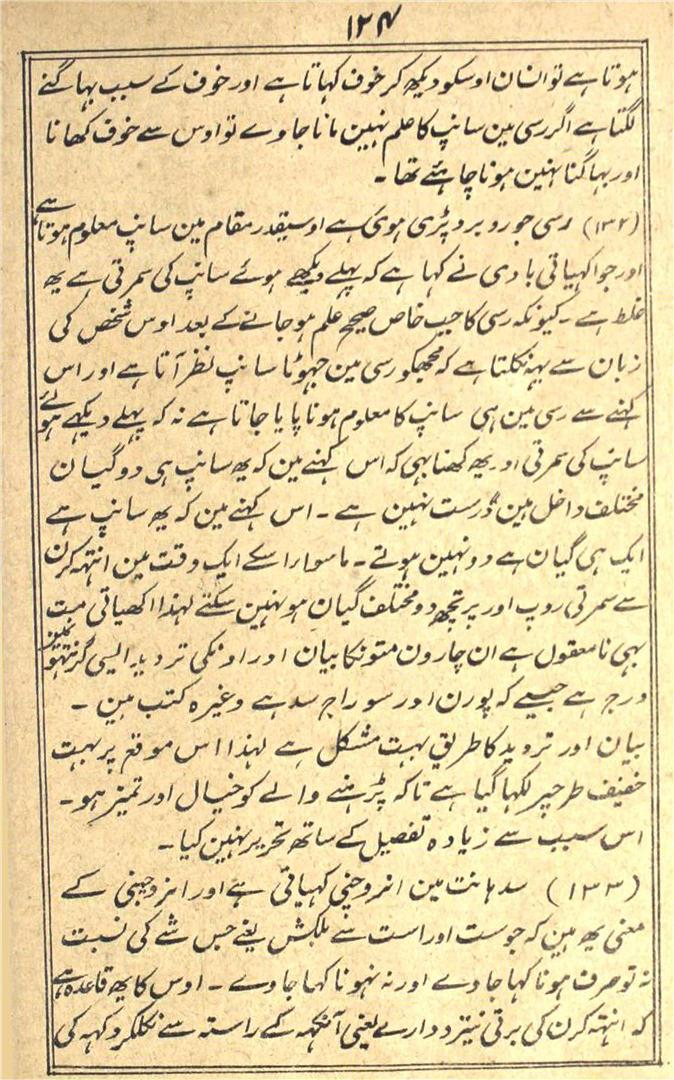 ۱۲۴
ہوتا ہے تو انسان اوسکو دیکھ کر خوف کہاتا ہے اور خوف کے سبب بہاگنے
لگتا ہے اگر رسی مین سانپ کا علم نہین مانا جاوے تو اوس سے خوف کھانا
اور بہاگنا نہین ہونا چاہئے تھا ۔
(۱۳۲) رسی جو روبرو پڑی ہوئی ہے اوسیقدر مقام مین سانپ معلوم ہوتا ہے
اور جو اکہیاتی بادی نے کہا ہے کہ پہلے دیکھے ہوئے سانپ کی سمرتی ہے یھ
غلط ہے ۔ کیونکہ رسی کا جب خاص صحیح علم ہو جانے کے بعد اوس شخص کی
زبان سے یہہ نکلتا ہے کہ مجھکو رسی مین جہوٹا سانپ نظر آتا ہے اور اس
کہنے سے رسی مین ہی سانپ کا معلوم ہونا پایا جاتا ہے نہ کہ پہلے دیکہے ہوئے
سانپ کی سمرتی اور یھ کھنا بہی کہ اس کہنے مین کہ یھ سانپ ہی دو گیان
مختلف داخل ہین دُرست نہین ہے ۔ اس کہنے مین کہ یھ سانپ ہے
ایک ہی گیان ہے دو نہین ہوتے ۔ ماسوا اسکے ایک وقت مین انتہہ کرن
سے سمرتی روپ اور پرتچھ دو مختلف گیان ہو نہین سکتے لہذا اکھیاتی مت
بہی نامعقول ہے ان چارون متونکا بیان اور اونکی تردید ایسی گرنتہو نمین
درج ہے جیسے کہ پورن اور سوراج سدہے وغیرہ کتب ہین ۔
بیان اور تردید کا طریق بہت مشکل ہے لہذا اس موقع پر بہت
خفیف طرحپر لکہا گیا ہے تاکہ پڑہنے والے کو خیال اور تمیز ہو ۔
اس سبب سے زیادہ تفصیل کے ساتھ تحریر نہین کیا ۔
(۱۳۳) سدہانت مین انروچنی کہیاتی ہے اور انروچنی کے
معنی یھ ہین کہ جو ست اور است سے بلکہش یعنے جس شے کی نسبت
نہ تو صرف ہونا کہا جاوے اور نہ نہونا کہا جاوے ۔ اوس کا یھ قاعدہ ہے
کہ انتہہ کرن کی برتی نیتر دوارے یعنی آنکہہ کے راستہ سے نکلکر دکہہ کی